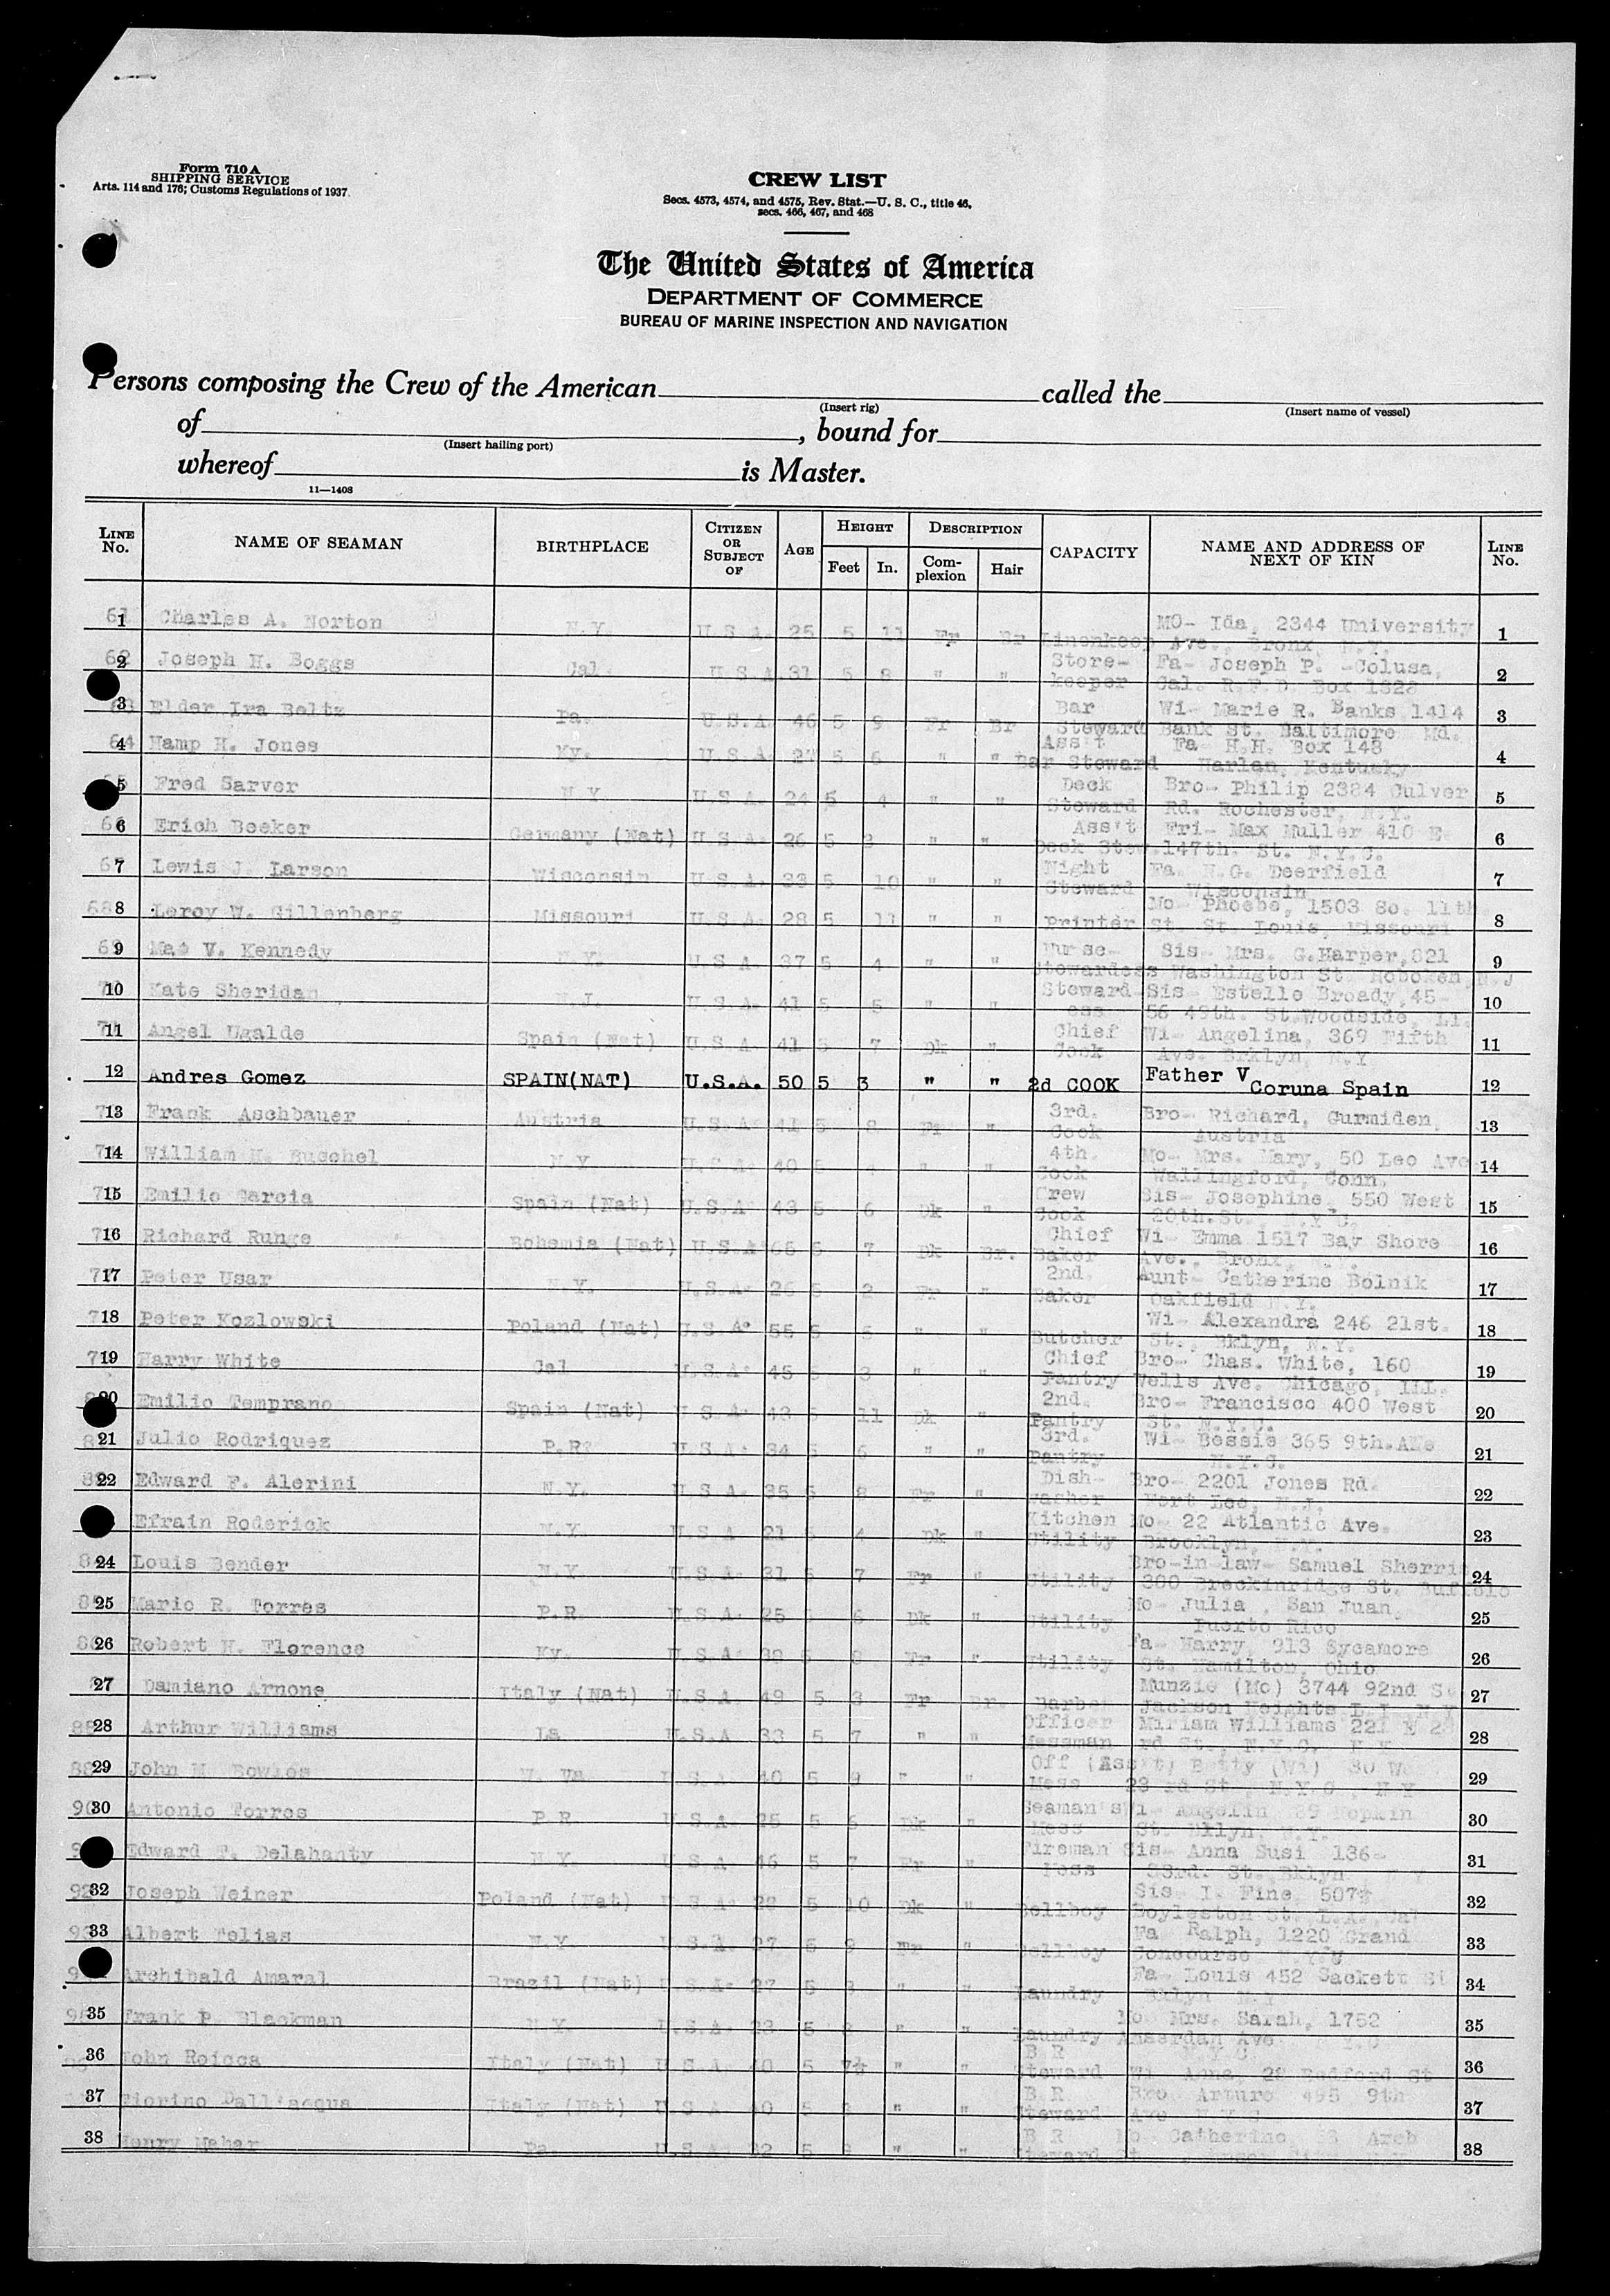 Form 710 A
SHIPPING SERVICE
Arts. 114 and 176; Customs Regulations of 1937.
CREW LIST
Secs. 4573, 4574, and 4575, Rev. Stat.—U. S. C., title 46,
secs. 466, 467, and 468
The United States of America
DEPARTMENT OF COMMERCE
BUREAU OF MARINE INSPECTION AND NAVIGATION
Persons composing the Crew of the American called the
(Insert rig) (Insert name of vessel)
of , bound for
(Insert hailing port)
whereof is Master.
11—1408
LINE No. NAME OF SEAMAN BIRTHPLACE CITIZEN OR SUBJECT OF AGE HEIGHT Feet In. DESCRIPTION Complexion Hair CAPACITY NAME AND ADDRESS OF NEXT OF KIN LINE No.
61 1 Charles A. Norton N.Y. U.S.A. 25 5 11 Fr Br Linenkeep MO- Ida, 2344 University 1
Ave., Bronx, N.Y.
62 2 Joseph H. Boggs Cal. U.S.A. 31 5 8 " " Store- Fa- Joseph P. -Colusa, 2
keeper Cal. R.F.D. Box 1328
3 Elder Ira Beltz Pa. U.S.A. 46 5 9 Fr Br Bar Wi- Marie R. Banks 1414 3
Steward Bank St. Baltimore Md.
64 4 Hamp H. Jones Ky. U.S.A. 27 5 6 " " Ass't Fa- H.H. Box 143 4
Bar Steward Harlan, Kentucky
5 Fred Sarver N.Y. U.S.A. 24 5 4 " " Deck Bro- Philip 2384 Culver 5
Steward Rd. Rochester, N.Y.
66 6 Erich Becker Germany (Nat) U.S.A. 26 5 " " Ass't Fri- Max Muller 410 E. 6
Deck Stew. 147th. St. N.Y.C.
67 7 Lewis J. Larson Wisconsin U.S.A. 33 5 10 " " Night Fa. H.G. Deerfield 7
Steward Wisconsin
68 8 Leroy W. Gillenberg Missouri U.S.A. 28 5 11 " " Printer Mo- Phoebe, 1503 So. 11th 8
St. St. Louis, Missouri
69 9 Mae V. Kennedy N.Y. U.S.A. 37 5 4 " " Nurse- Sis- Mrs. G.Harper, 821 9
Stewardess Washington St. Hoboken, N.J
10 Kate Sheridan N.J. U.S.A. 41 5 5 " " Steward- Sis- Estelle Broady, 45- 10
ess 56 49th. St. Woodside, LI.
11 Angel Ugalde Spain (Nat) U.S.A. 41 5 7 Dk " Chief Wi- Angelina, 369 Fifth 11
Cook Ave. Brklyn, N.Y.
12 Andres Gomez SPAIN(NAT) U.S.A. 50 5 3 " " 2d COOK Father V 12
Coruna Spain
13 Frank Aschbauer Austria U.S.A. 41 5 8 Fr " 3rd. Bro- Richard, Gurmiden, 13
Cook Austria
14 William H. Buschel N.Y. U.S.A. 40 5 " " 4th. Mo- Mrs. Mary, 50 Leo Ave 14
Cook Wallingford, Conn.
15 Emilio Garcia Spain (Nat) U.S.A. 43 5 6 Dk " Crew Sis- Josephine, 550 West 15
Cook 20th.St., N.Y.C.
16 Richard Runge Bohemia (Nat) U.S.A. 5 7 Dk Br. Chief Wi- Emma 1517 Bay Shore 16
Baker Ave., Bronx,
17 Peter Usar N.Y. U.S.A. 26 5 2 Fr " 2nd. Aunt- Catherine Bolnik 17
Baker Oakfield N.Y.
18 Peter Kozlowski Poland (Nat) U.S.A. 55 5 5 " " Butcher Wi- Alexandra 246 21st. 18
St., Bklyn, N.Y.
19 Harry White Cal U.S.A. 45 5 3 " " Chief Bro- Chas. White, 160 19
Pantry Wells Ave. Chicago, Ill.
20 Emilio Temprano Spain (Nat) U.S.A. 43 5 11 Dk " 2nd. Bro- Francisco 400 West 20
Pantry St. N.Y.C.
21 Julio Rodriquez P.R. U.S.A. 34 5 6 " " 3rd. Wi- Bessie 365 9th. Ave 21
Pantry N.Y.C.
22 Edward F. Alerini N.Y. U.S.A. 35 5 8 Fr " Dish- Bro- 2201 Jones Rd. 22
washer Fort Lee, N.J.
Efrain Roderick N.Y. U.S.A. 21 5 4 Dk " Kitchen Mo- 22 Atlantic Ave. 23
Utility Brooklyn, N.Y.
24 Louis Bender N.Y. U.S.A. 31 5 7 Fr " Utility Bro-in-law- Samuel Sherris 24
360 Breckinridge St. Buffalo
25 Mario R. Torres P.R. U.S.A. 25 5 6 Dk " Utility Mo- Julia, San Juan, 25
Puerto Rico
26 Robert H. Florence Ky. U.S.A. 5 8 Fr " Utility Fa- Harry, 213 Sycamore 26
St. Hamilton, Ohio
27 Damiano Arnone Italy (Nat) U.S.A. 49 5 3 Fr Br. Barber Munzie (Mo) 3744 92nd St 27
Jackson Heights L.I. N.Y
28 Arthur Williams La. U.S.A 33 5 7 " " Officer Miriam Williams 221 E 28
Messman rd St., N.Y.C. N.Y
29 John M. Bowles W. Va. U.S.A. 40 5 9 " " Off (Ass't) Betty (Wi) 30 W 29
Mess 23 rd St., N.Y.C., N.Y
90 30 Antonio Torres P.R. U.S.A. 25 5 6 Dk " Seaman's Wi- Angelin 89 Hopkin 30
Mess St. Bklyn, N.Y.
Edward F. Delahanty N.Y. U.S.A. 46 5 7 Fr " Fireman Sis- Anna Susi 136- 31
Mess 83rd. St. Bklyn, N.Y
92 32 Joseph Weiner Poland (Nat) U.S.A. 5 10 Dk " Bellboy Sis- I. Fine, 507½ 32
Boyleston St. L.A., Cal
33 Albert Telias N.Y. U.S.A. 27 5 Fr " Bellboy Fa Ralph, 1220 Grand 33
Concourse
Archibald Amaral Brazil (Nat) U.S.A. 27 5 " " Laundry Fa- Louis 452 Sackett St 34
Bklyn N.Y
35 Frank P. Blackman N.Y. U.S.A. 5 " " Laundry Mo Mrs. Sarah, 1752 35
Amserdam Ave
36 John Roicca Italy (Nat) U.S.A. 40 5 7½ " " B R Steward Wi Anna, 28 Bedford St 36
37 Fiorino Dalliacqua Italy (Nat) U.S.A 40 5 " " B.R. Bro. Arturo 495 9th 37
Steward Ave N.Y.C
38 Henry Maher Pa. U.S.A. 32 5 " " B R Catherine, Arch 38
Steward